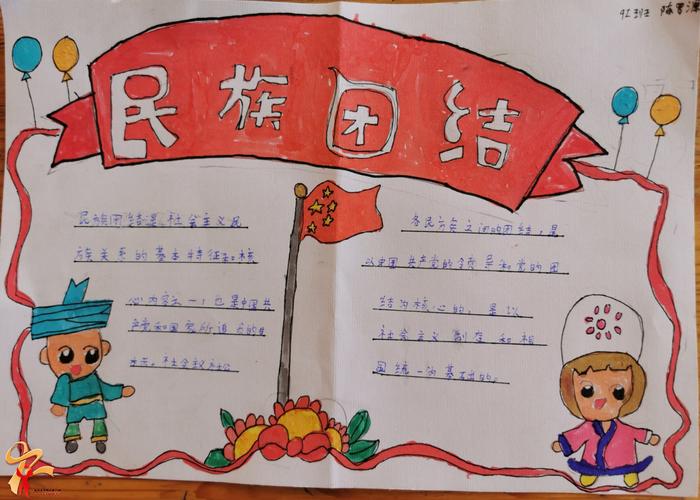 91班 陈
民族团结
民族团结是社会主义民
族关系的基本特征和核
心内容之一,也是中国共
产党和国家所追求的目
标。社会
各民族之间的团结,是
以中国共产党的领导和党的团
结为核心的,是以
社会主义制度和祖
国统一为基础的。